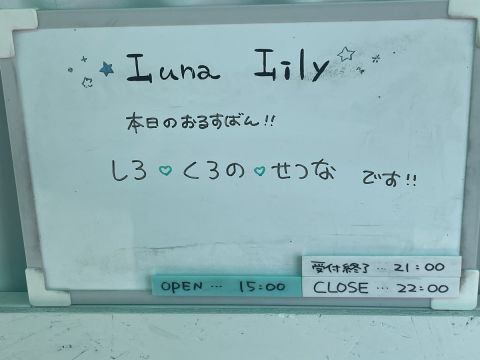 Luna Lily
本日のおるすばん!!
しろ♡くろの♡せつな です!!
受付終了…21:00
OPEN…15:00 CLOSE…22:00